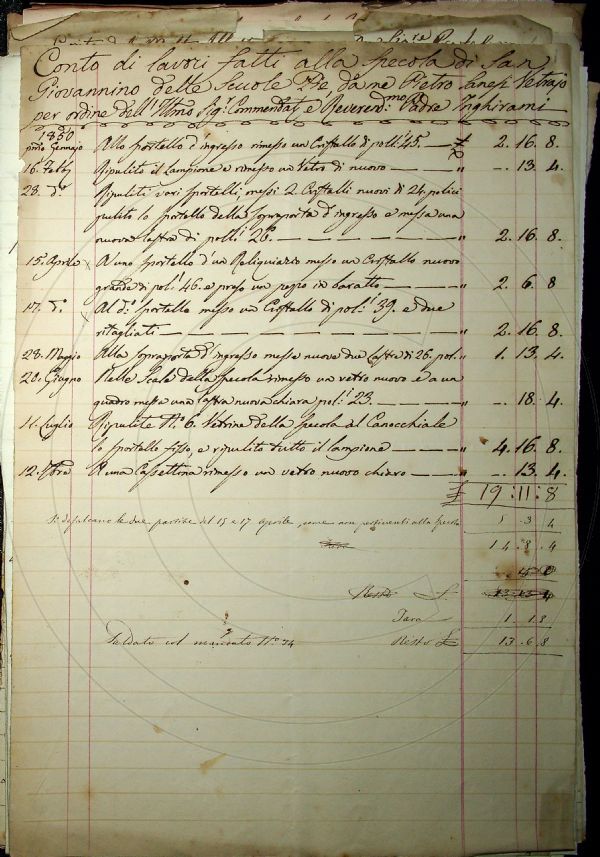 Conto di lavori fatti alla Specola di San
Giovannino delle Scuole Pie, da me Pietro Sanesi Vetrajo
per ordine dell' Illmo Sigr Commendat e Reverendmo Padre Inghirami
1850
primo Gennajo Allo sportello d'ingresso rimesso un Cristallo di polli 45. £ 2. 16. 8.
16. Febbj Ripulito il lampione e rimesso un Vetro di nuovo " -. 13. 4.
23. do Ripuliti vari sportelli, messi 2. Cristalli nuovi di 24. polici
pulito lo sportello della sopraporta d'ingresso e messa una
nuova lastra di polli 26. " 2. 16. 8.
15. Aprile A uno sportello d'un Reliquiario messo un Cristallo nuovo
grande di poli 46. e preso un pezzo in baratto " 2. 6. 8
17. do Al do Sportello messo un Cristallo di poli 39. e due
ritagliati " 2. 16. 8.
28. Maggio Alla sopraporta d'ingresso messe nuove due lastre di 26. pol. " 1. 13. 4.
20. Giugno Nelle Scale della Specola rimesso un vetro nuovo e a un
quadro messa una lastra nuova chiara poli 23. " -. 18. 4.
11. Luglio Ripulite No 6. Vetrine della Specola al Canocchiale
lo sportello fisso, e ripulito tutto il lampione " 4. 16. 8.
12. 9bre A una Cassettina rimesso un vetro nuovo chiaro " -. 13. 4.
£ 19 : 11 : 8
Si defalcano le due partite del 15 e 17 Aprile come non pertinenti alla Specola 5 3 4
14. 8. 4
Resto £ 13 15 4
Tara 1. 1. 8
Saldato col mandato No 74 Resto £ 13. 6. 8